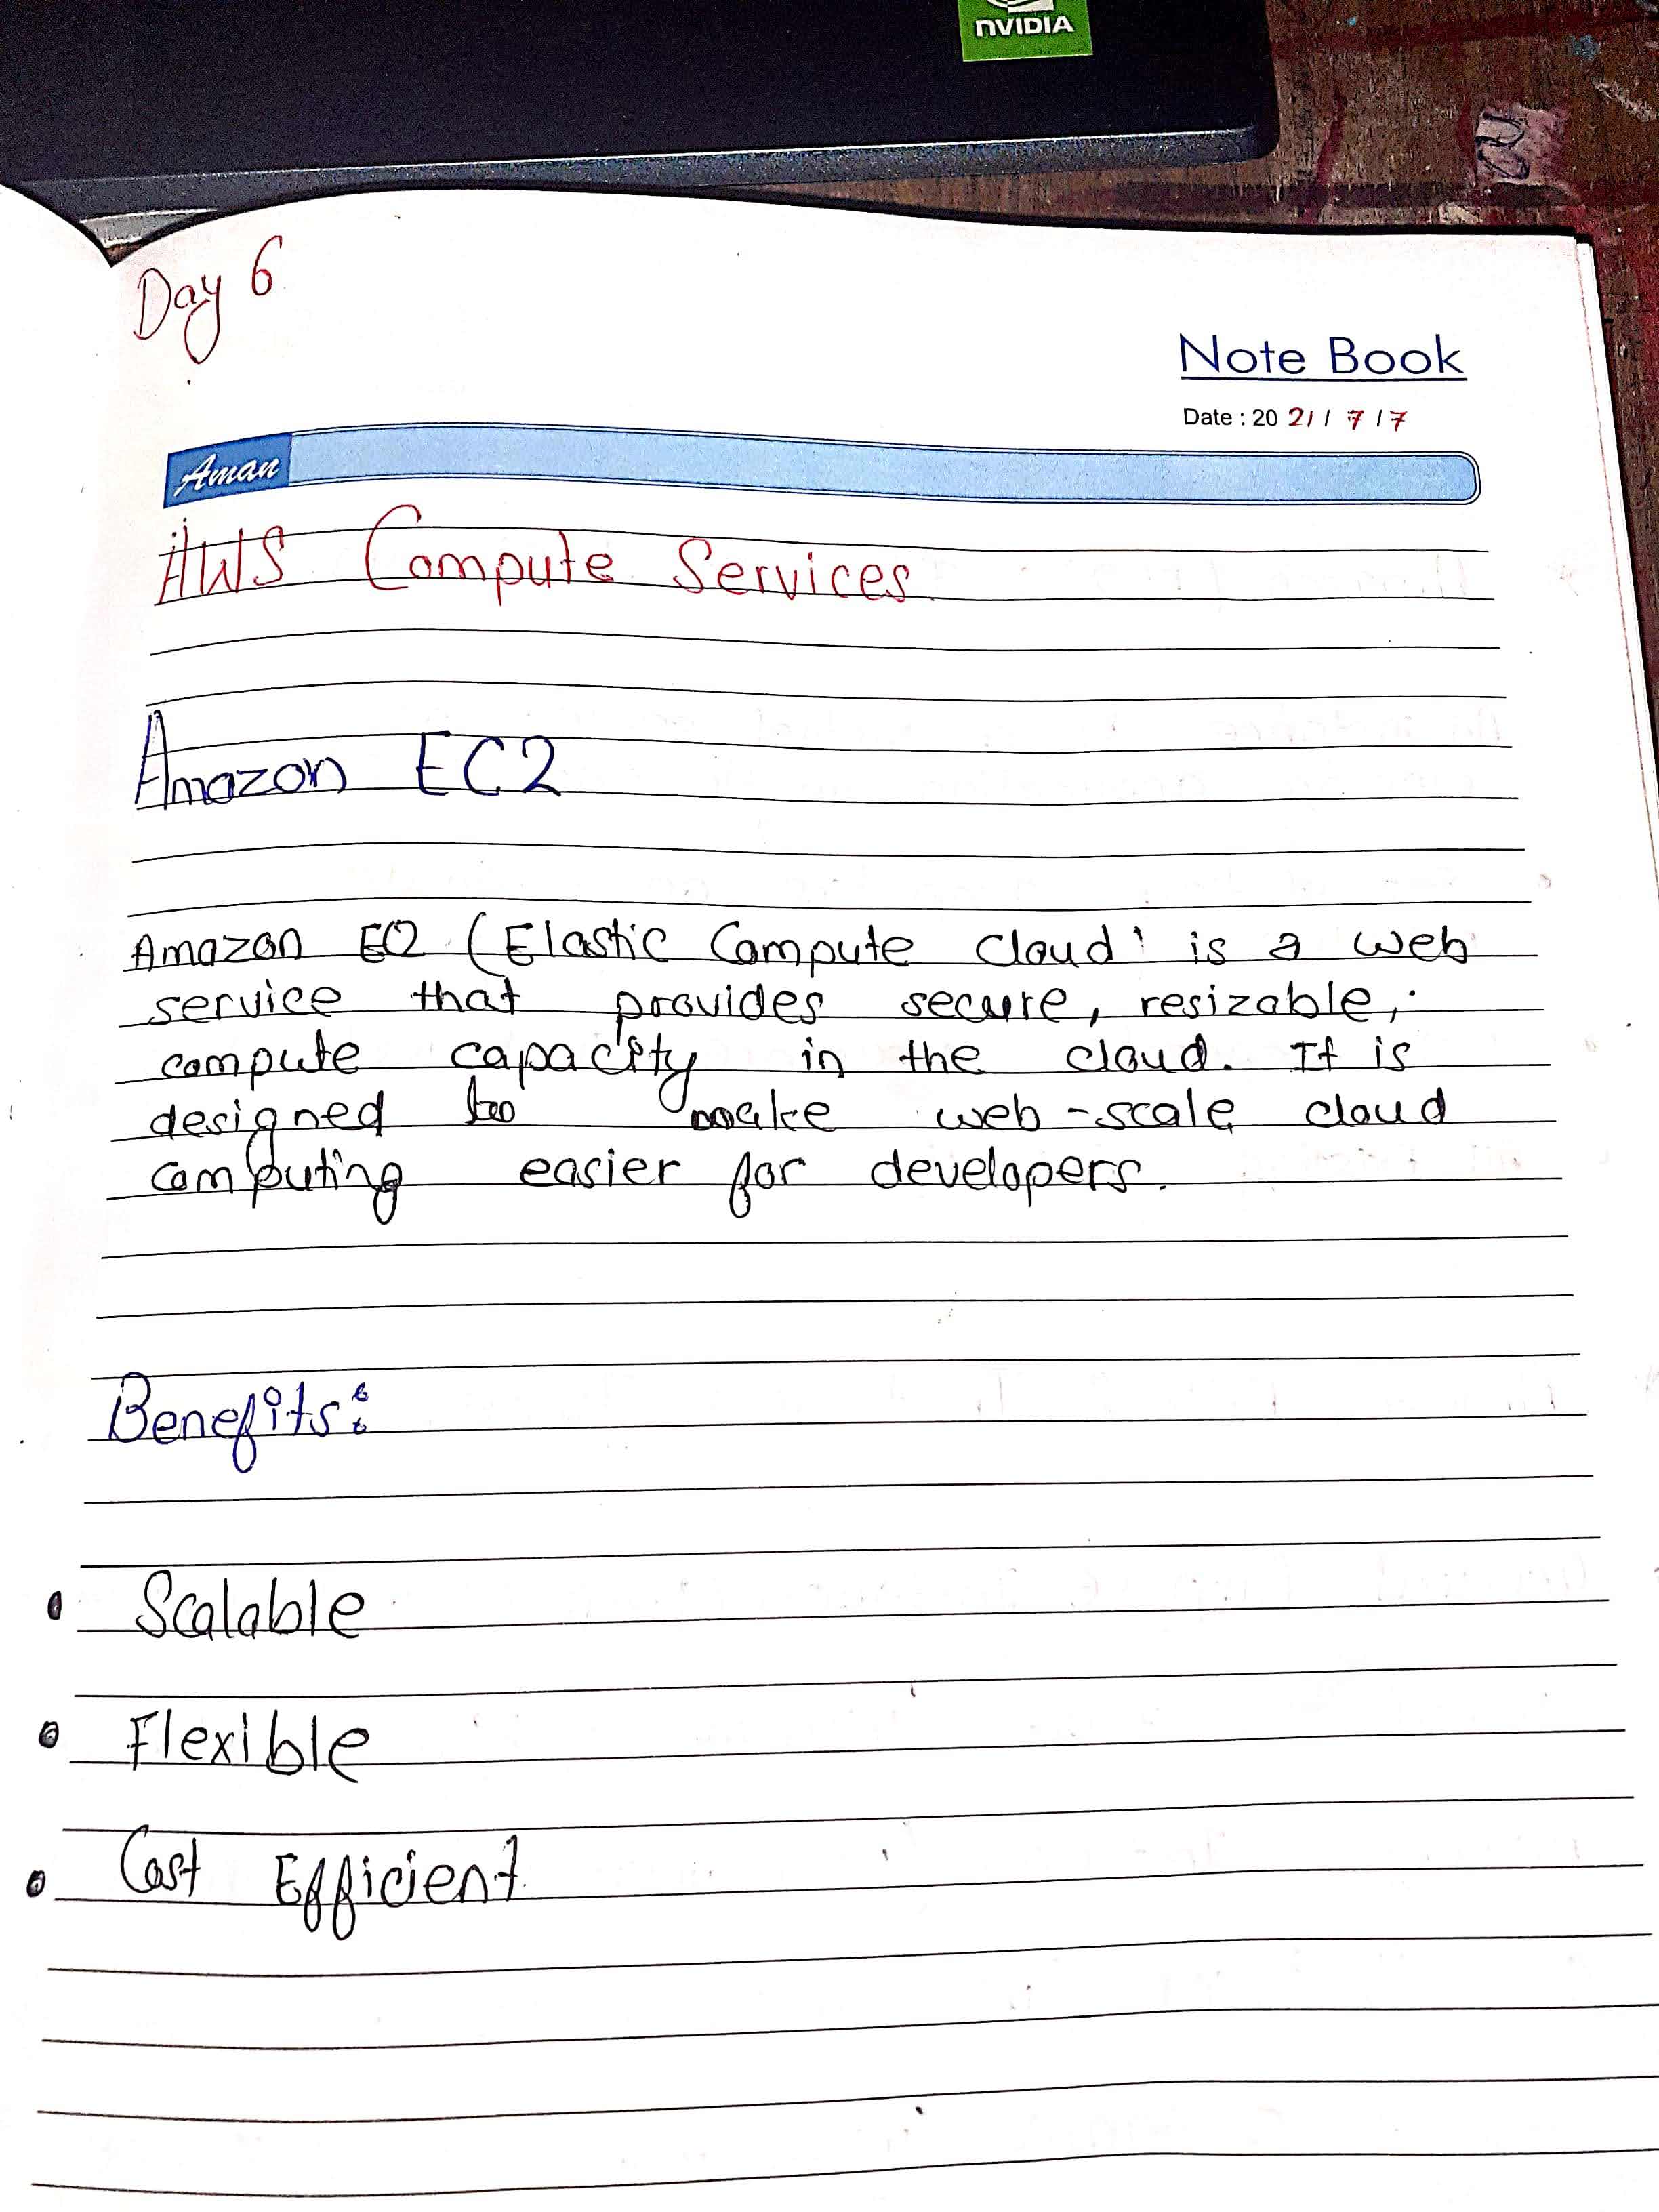 nVIDIA
Day 6
Note Book
Date : 20 21 / 7 / 7
Aman
AWS Compute Services
Amazon EC2
Amazon EC2 (Elastic Compute Cloud) is a web
service that provides secure, resizable,
compute capacity in the cloud. It is
designed to make web-scale cloud
computing easier for developers.
Benefits:
• Scalable
• Flexible
• Cost Efficient